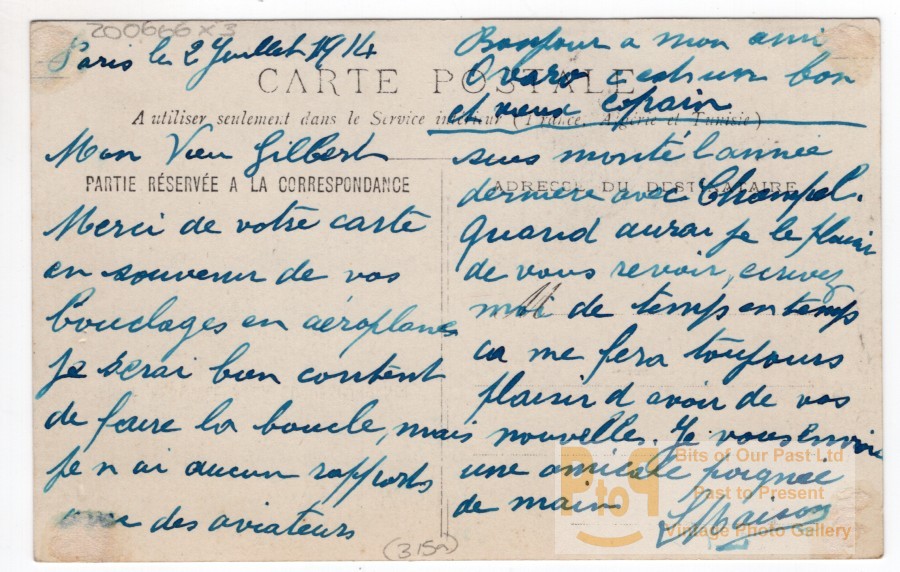 200666 x 3
Paris le 2 Juillet 1914
CARTE POSTALE
A utiliser seulement dans le Service intérieur (France, Algérie et Tunisie)
Mon Vieu Gilbert
PARTIE RÉSERVÉE A LA CORRESPONDANCE
Merci de votre carte
en souvenir de vos
bouclages en aéroplane
je serai bien content
de faire la boucle, mais
je n ai aucun rapports
des aviateurs
Bonjour a mon ami
c est un bon
et vieux copain
suis monté l année
ADRESSE DU DESTINATAIRE
derniere avec Champel.
Quand aurai je le plaisir
de vous revoir, ecrivez
moi de temps en temps
ca me fera toujours
plaisir d avoir de vos
nouvelles. Je vous envoie
une amicale poignée
de main
(315a)
PtoP
Bits of Our Past Ltd
Past to Present
Vintage Photo Gallery